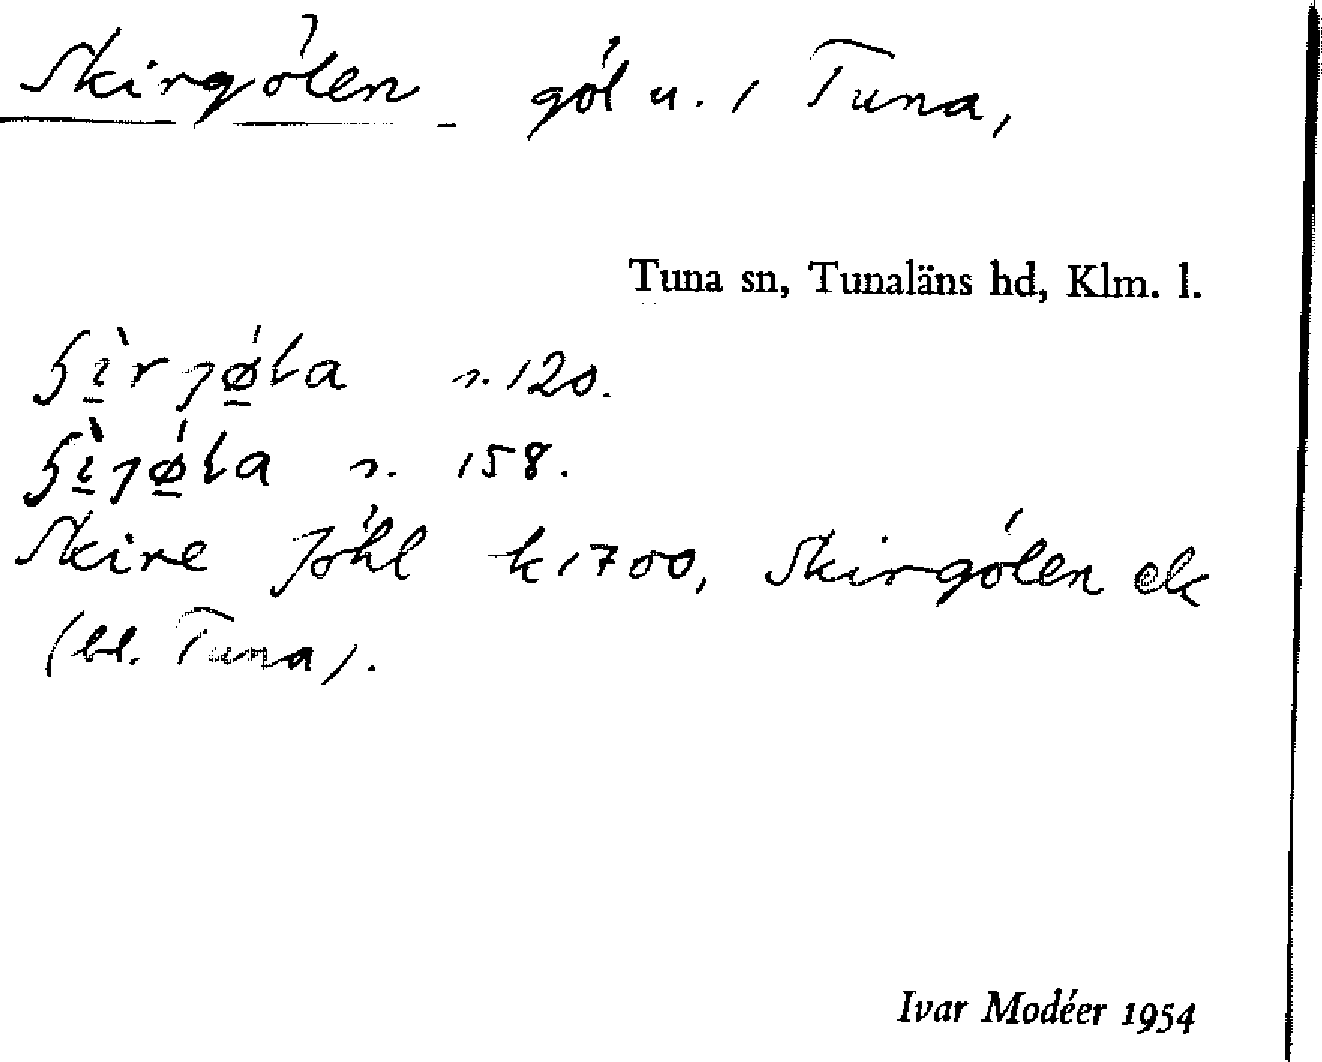 Skirgölen göl u. / Tuna,
Tuna sn, Tunaläns hd, Klm. l.
s. 120.
s. 158.
Skire Jöhl k 1700, Skirgölen ek
(bl. Tuna).
Ivar Modéer 1954